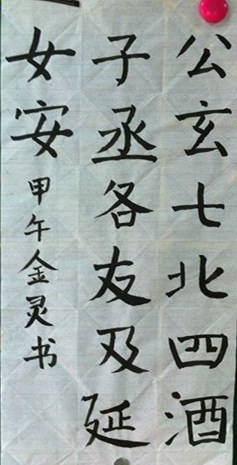 公玄七北四酒
子丞各友及延
女安
甲午金灵书